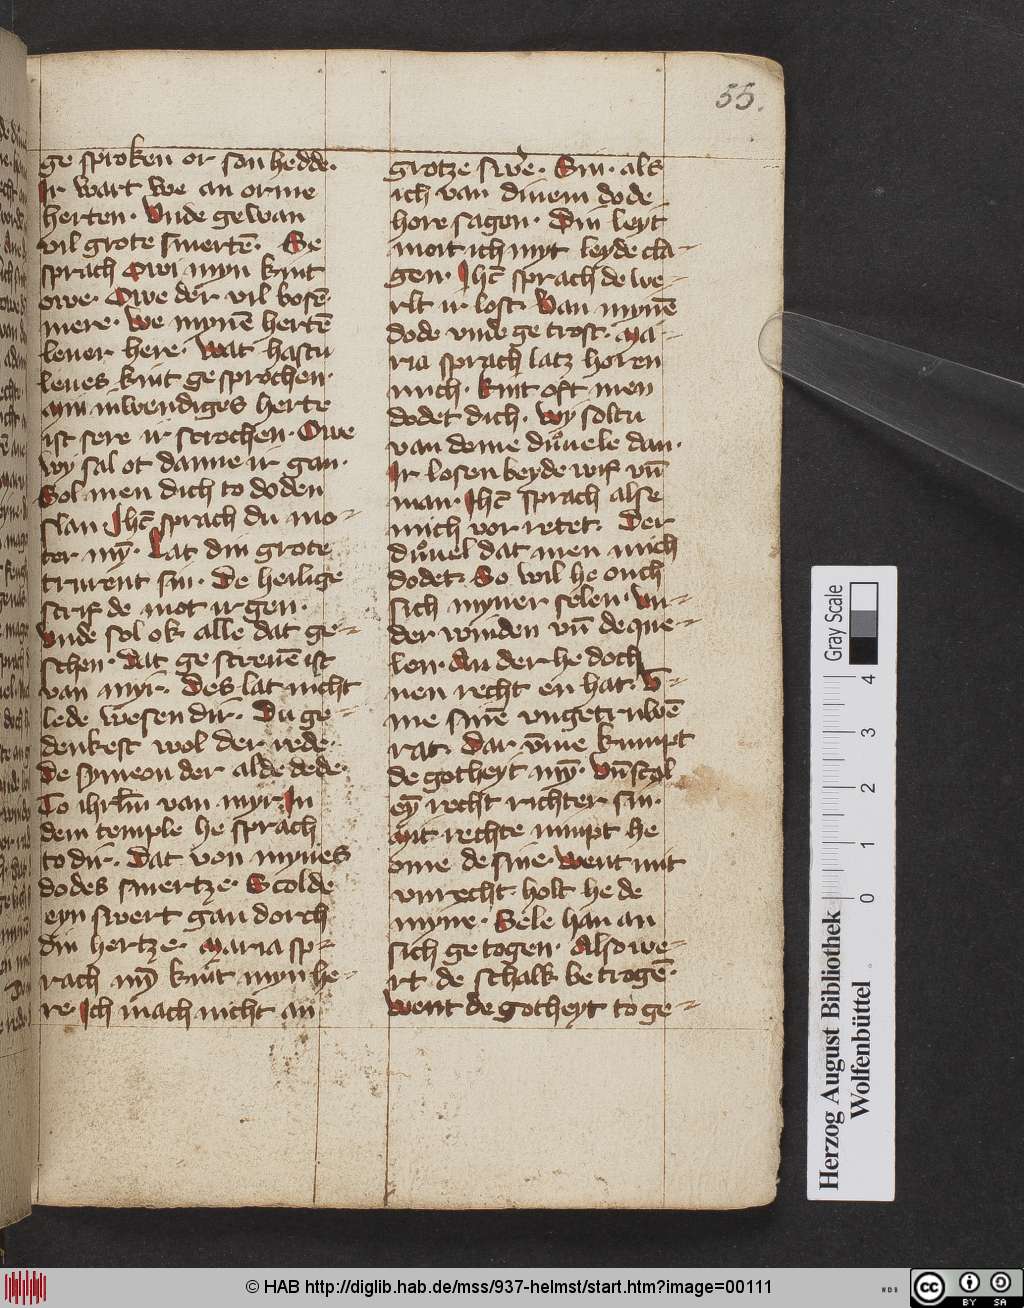 55.
ge sproken or son hedde.
Ir wart we an orme
herten. Vnde gewan
vil grote smertē. Se
sprach Owi myn kint
owe. Owe der vil bosē.
mere. we mynē hertē
leuer here. wat hastu
leues kint gesprochen.
myn inwendiges herte
ist sere ir strochen. Owe
wy sal ot danne ir gan.
Sol men dich to doden
slan. Ihc̄ sprach du mo-
ter mȳ. Lat din grote
trurent sin. De heilige
scrift de mot ir gen.
Vnde sol ok alle dat ge-
schen. Dat ge screuē ist
van myr. Des lat nicht
lede wesen dir. Du ge-
denkest wol der rede.
De symeon der alde dede.
To ihrlm̄ van myr. In
dem temple he sprach
to dir. Dat von mynes
dodes smertze. Scolde
eyn swert gan dorch
din hertze. Maria sp-
rach mȳ kint myn he-
re. Ich mach nicht an
grotze swe. Sin. als
ich van dinem dode
hore sagen. Din leyt
mot ich myt leyde cla-
gen. Ihc̄ sprach de we-
rlt ir lost. Van mynē
dode vnde ge trost. Ma-
ria sprach latz horen
mich. kint oft men
dodet dich. wy soltu
van deme duuele dan.
Ir losen beyde wif vn̄
man. Ihc̄ sprach alse
mich vor retet. Der
duuel dat men mich
dodet. So wil he ouch
sich myner selen. Vn-
der winden vn̄ de que-
len. An der he doch
nen recht en hat. V̄-
me sinē vngetruwē
rat. Dar v̄me kumpt
de gotheyt mȳ. Vn̄ scol
eȳ recht richter sin.
Mit rechte nimpt he
ome de sine. Went mit
vnrecht. holt he de
myne. Sele han an
sich ge togen. Also we-
rt de schalk be trogē.
Went de gotheyt to ge-
Gray Scale
0 1 2 3 4
Herzog August Bibliothek
Wolfenbüttel
© HAB http://diglib.hab.de/mss/937-helmst/start.htm?image=00111
WDB
cc BY SA